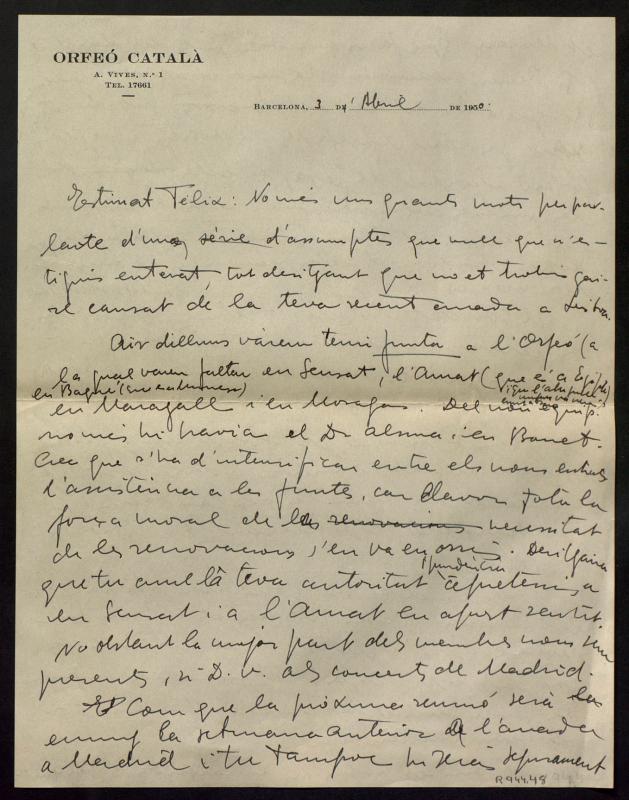 ORFEÓ CATALÀ
A. VIVES, N.º 1
TEL. 17661
BARCELONA, 3 D' Abril DE 1950.
Estimat Fèlix: Només uns quants mots per par-
larte d'una sèrie d'assumptes que vull que n'es-
tiguis enterat, tot desitjant que no et trobis gai-
re cansat de la teva recent anada a
Air dilluns vàrem tenir junta a l'Orfeó (a
la qual varen faltar en Sensat, l'Amat (que és a
en Bagué
en Maragall i en Moragas. Del nou equip
només hi havia el Dr Alsina i en Bonet.
Crec que s'ha d'intensificar entre els nous entrats
l'assistència a les juntes, car llavors tota la
força moral de les renovacions necessitat
de les renovacions s'en va en Desitjaria
que tu amb la teva autoritat i prudència a
en Sensat i a l'Amat en aquest sentit.
No obstant la major part dels membres nous
presents, si D. v. als concerts de Madrid.
Com que la pròxima reunió serà
enguany la setmana anterior a l'anada
a Madrid i tu tampoc hi seràs segurament
R 944.48